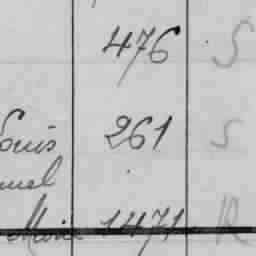 476 S
Louis 261 S
uel
Marie 1471 R